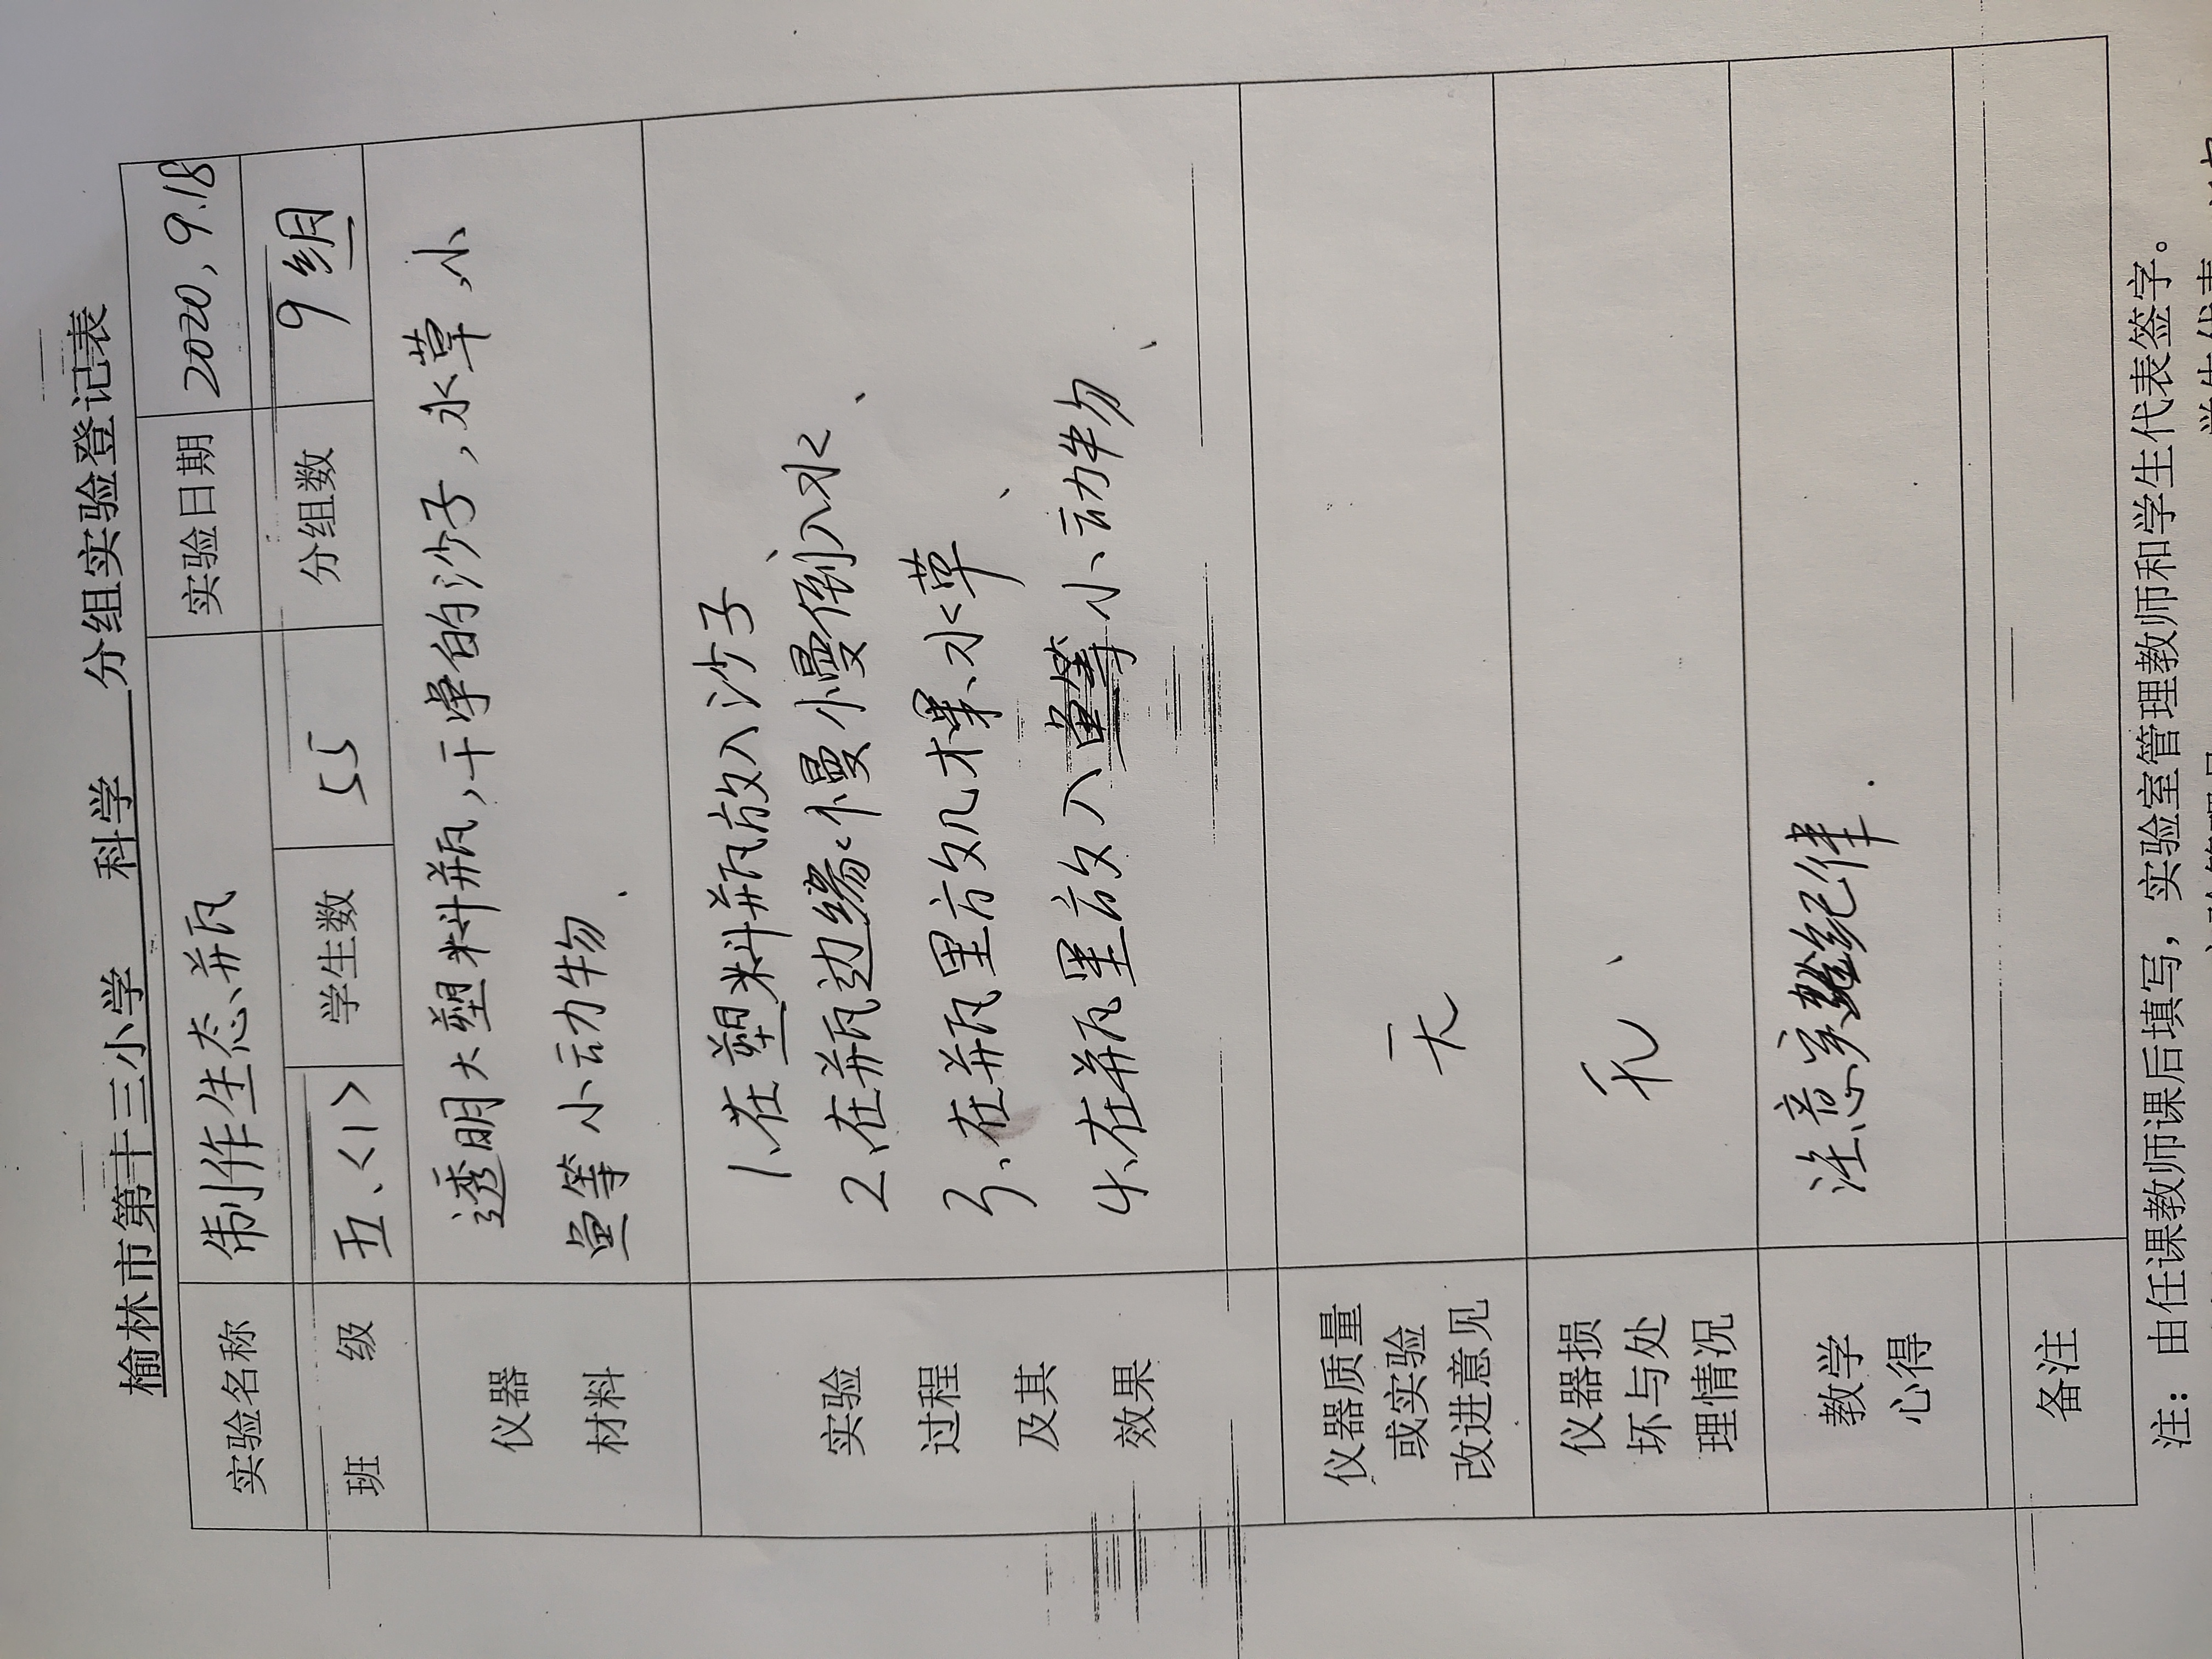 榆林市第十三小学 科学 分组实验登记表
实验名称 制作生态瓶 实验日期 2020,9.18
班 级 五、<1> 学生数 55 分组数 9组
仪器
材料
透明大塑料瓶,干净的沙子,水草,小
鱼等小动物、
实验
过程
及其
效果
1、在塑料瓶放入沙子
2、在瓶边缘慢慢倒入水、
3、在瓶里放几棵水草、
4、在瓶里放入鱼等小动物、
仪器质量
或实验
改进意见
无
仪器损
坏与处
理情况
无、
教学
心得
注意实验纪律.
备注
注：由任课教师课后填写，实验室管理教师和学生代表签字。